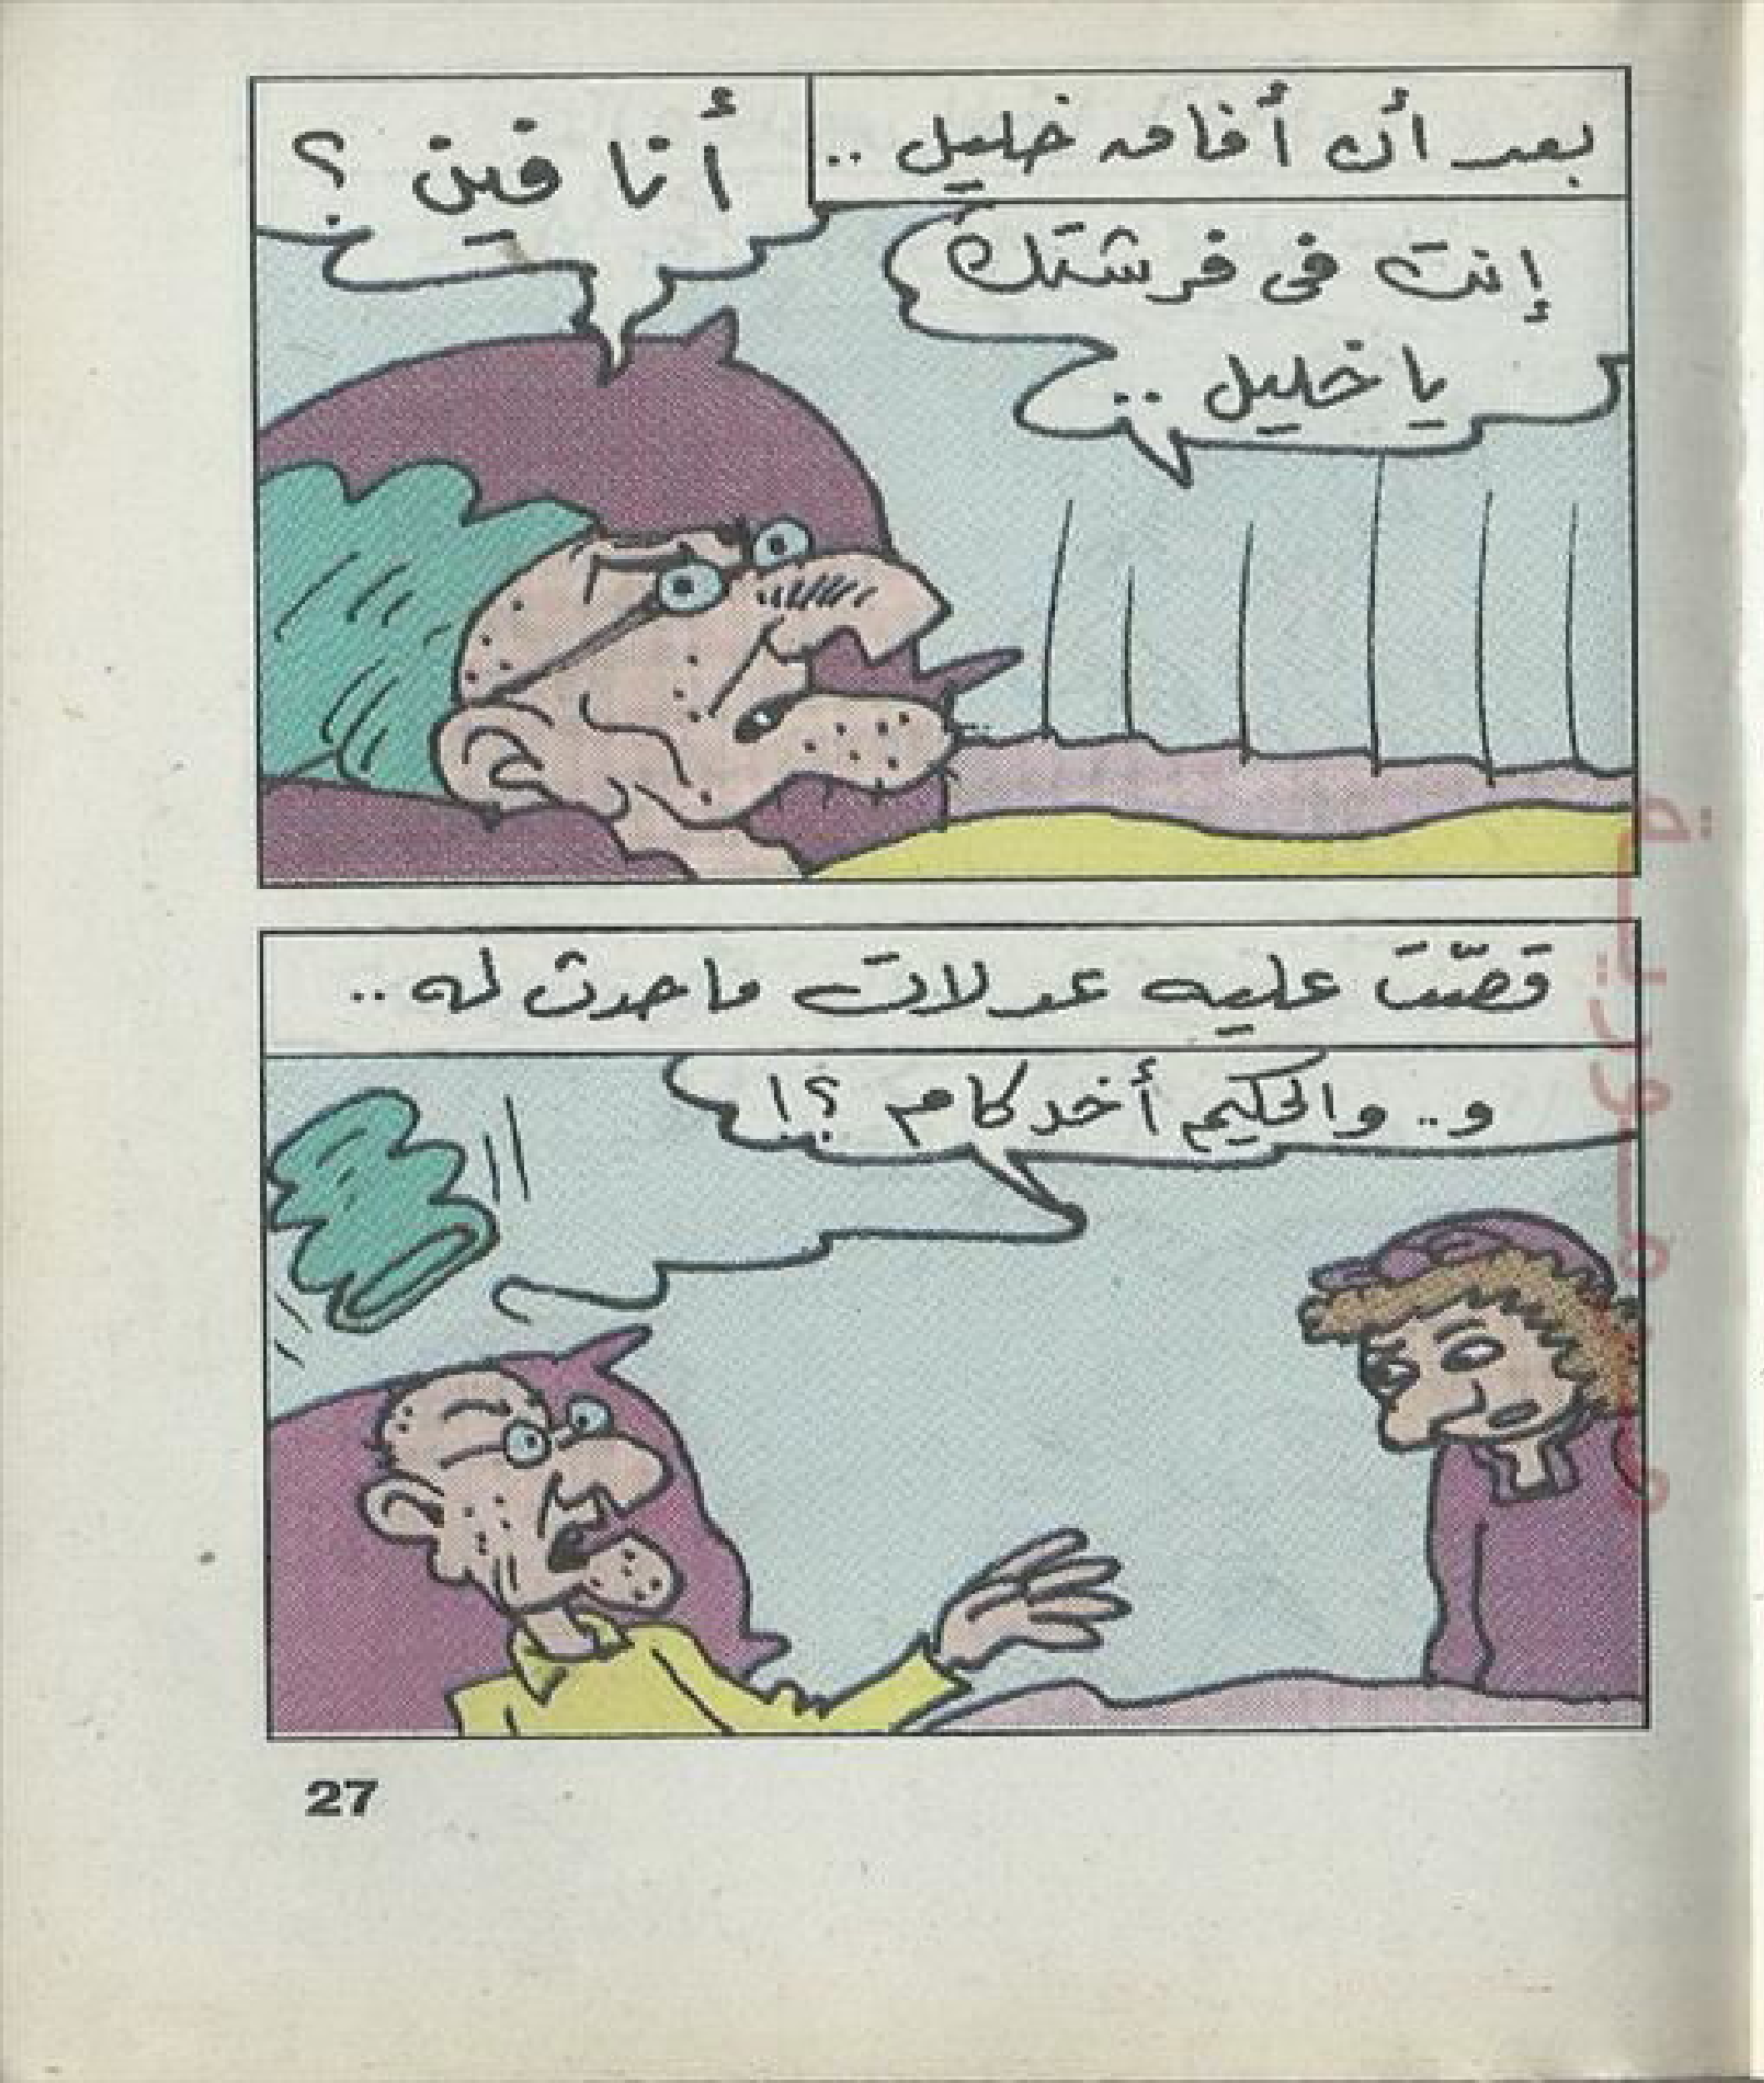 بعد أن أفاق خليل ..
أنا فين ؟
إنت فى فرشتك
يا خليل ..
قصّت عليه عدلات ما حدث له ..
و.. والحكيم أخد كام ؟!
27